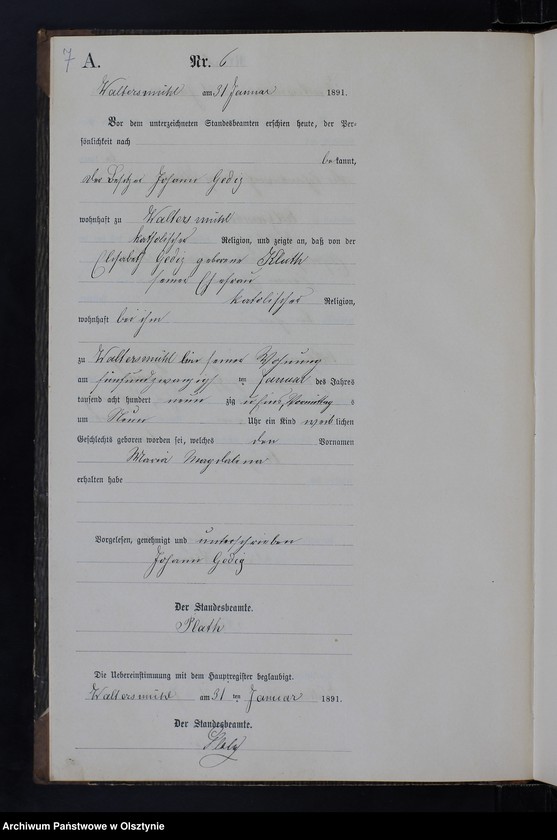 7 A. Nr. 6
Waltersmühl am 31 Januar 1891.
Vor dem unterzeichneten Standesbeamten erschien heute, der Per-
sönlichkeit nach
bekannt,
der Besitzer Johann Godig
wohnhaft zu Waltersmühl
katholischer Religion, und zeigte an, daß von der
Elisabeth Godig geborene Kluth
seiner Ehefrau
katolischer Religion,
wohnhaft bei ihm
zu Waltersmühl seiner Wohnung
am fünfundzwanzig ten Januar des Jahres
tausend acht hundert neun zig Vormittag s
um Neun Uhr ein Kind weiblichen
Geschlechts geboren worden sei, welches den Vornamen
Maria Magdalena
erhalten habe
Vorgelesen, genehmigt und unterschrieben
Johann Godig
Der Standesbeamte.
Plath
Die Uebereinstimmung mit dem Hauptregister beglaubigt.
Waltersmühl am 31 ten Januar 1891.
Der Standesbeamte.
Archiwum Państwowe w Olsztynie